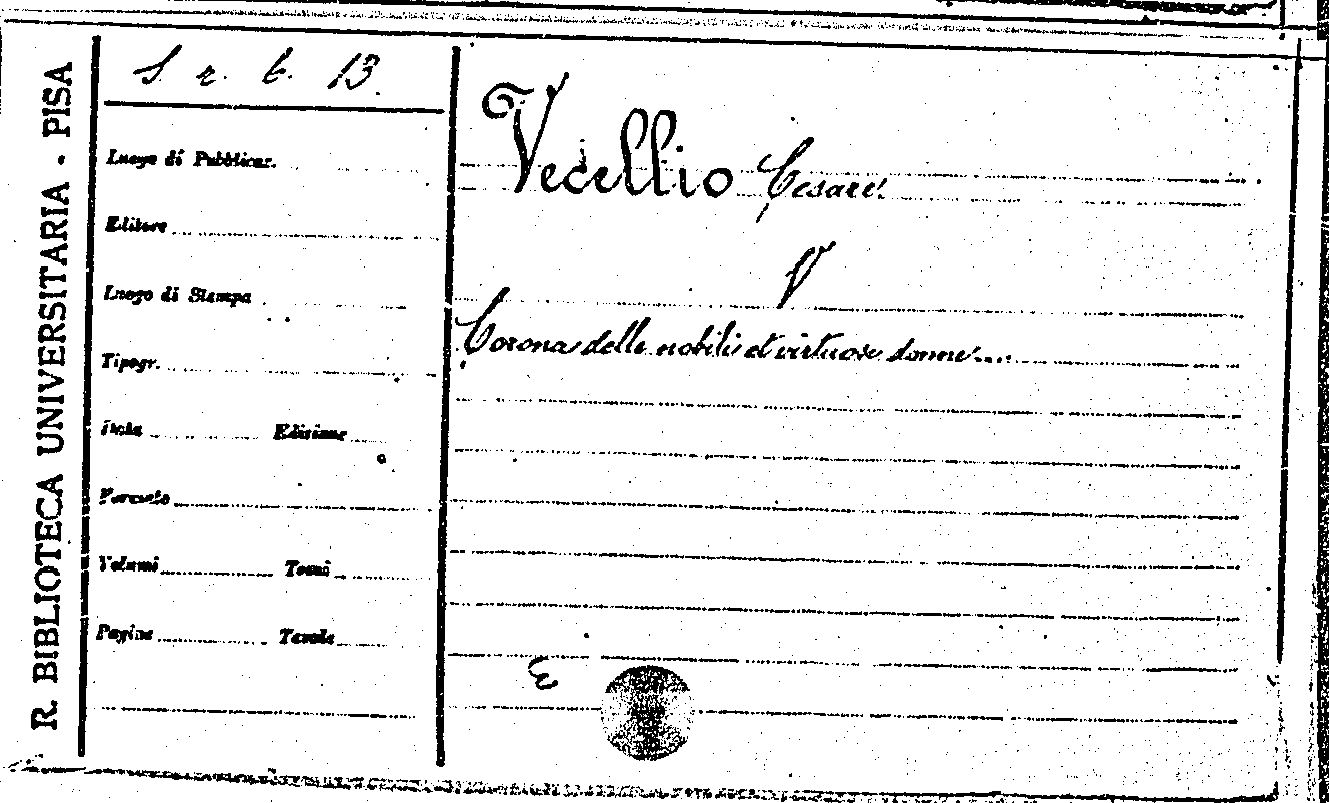 R. BIBLIOTECA UNIVERSITARIA - PISA
S r. 6. 13.
Luogo di Pubblicaz.
Editore
Luogo di Stampa
Tipogr.
Data Edizione
Formato
Volumi Tomi
Pagine Tavole
Vecellio Cesare
V
Corona delle nobili et virtuose donne....